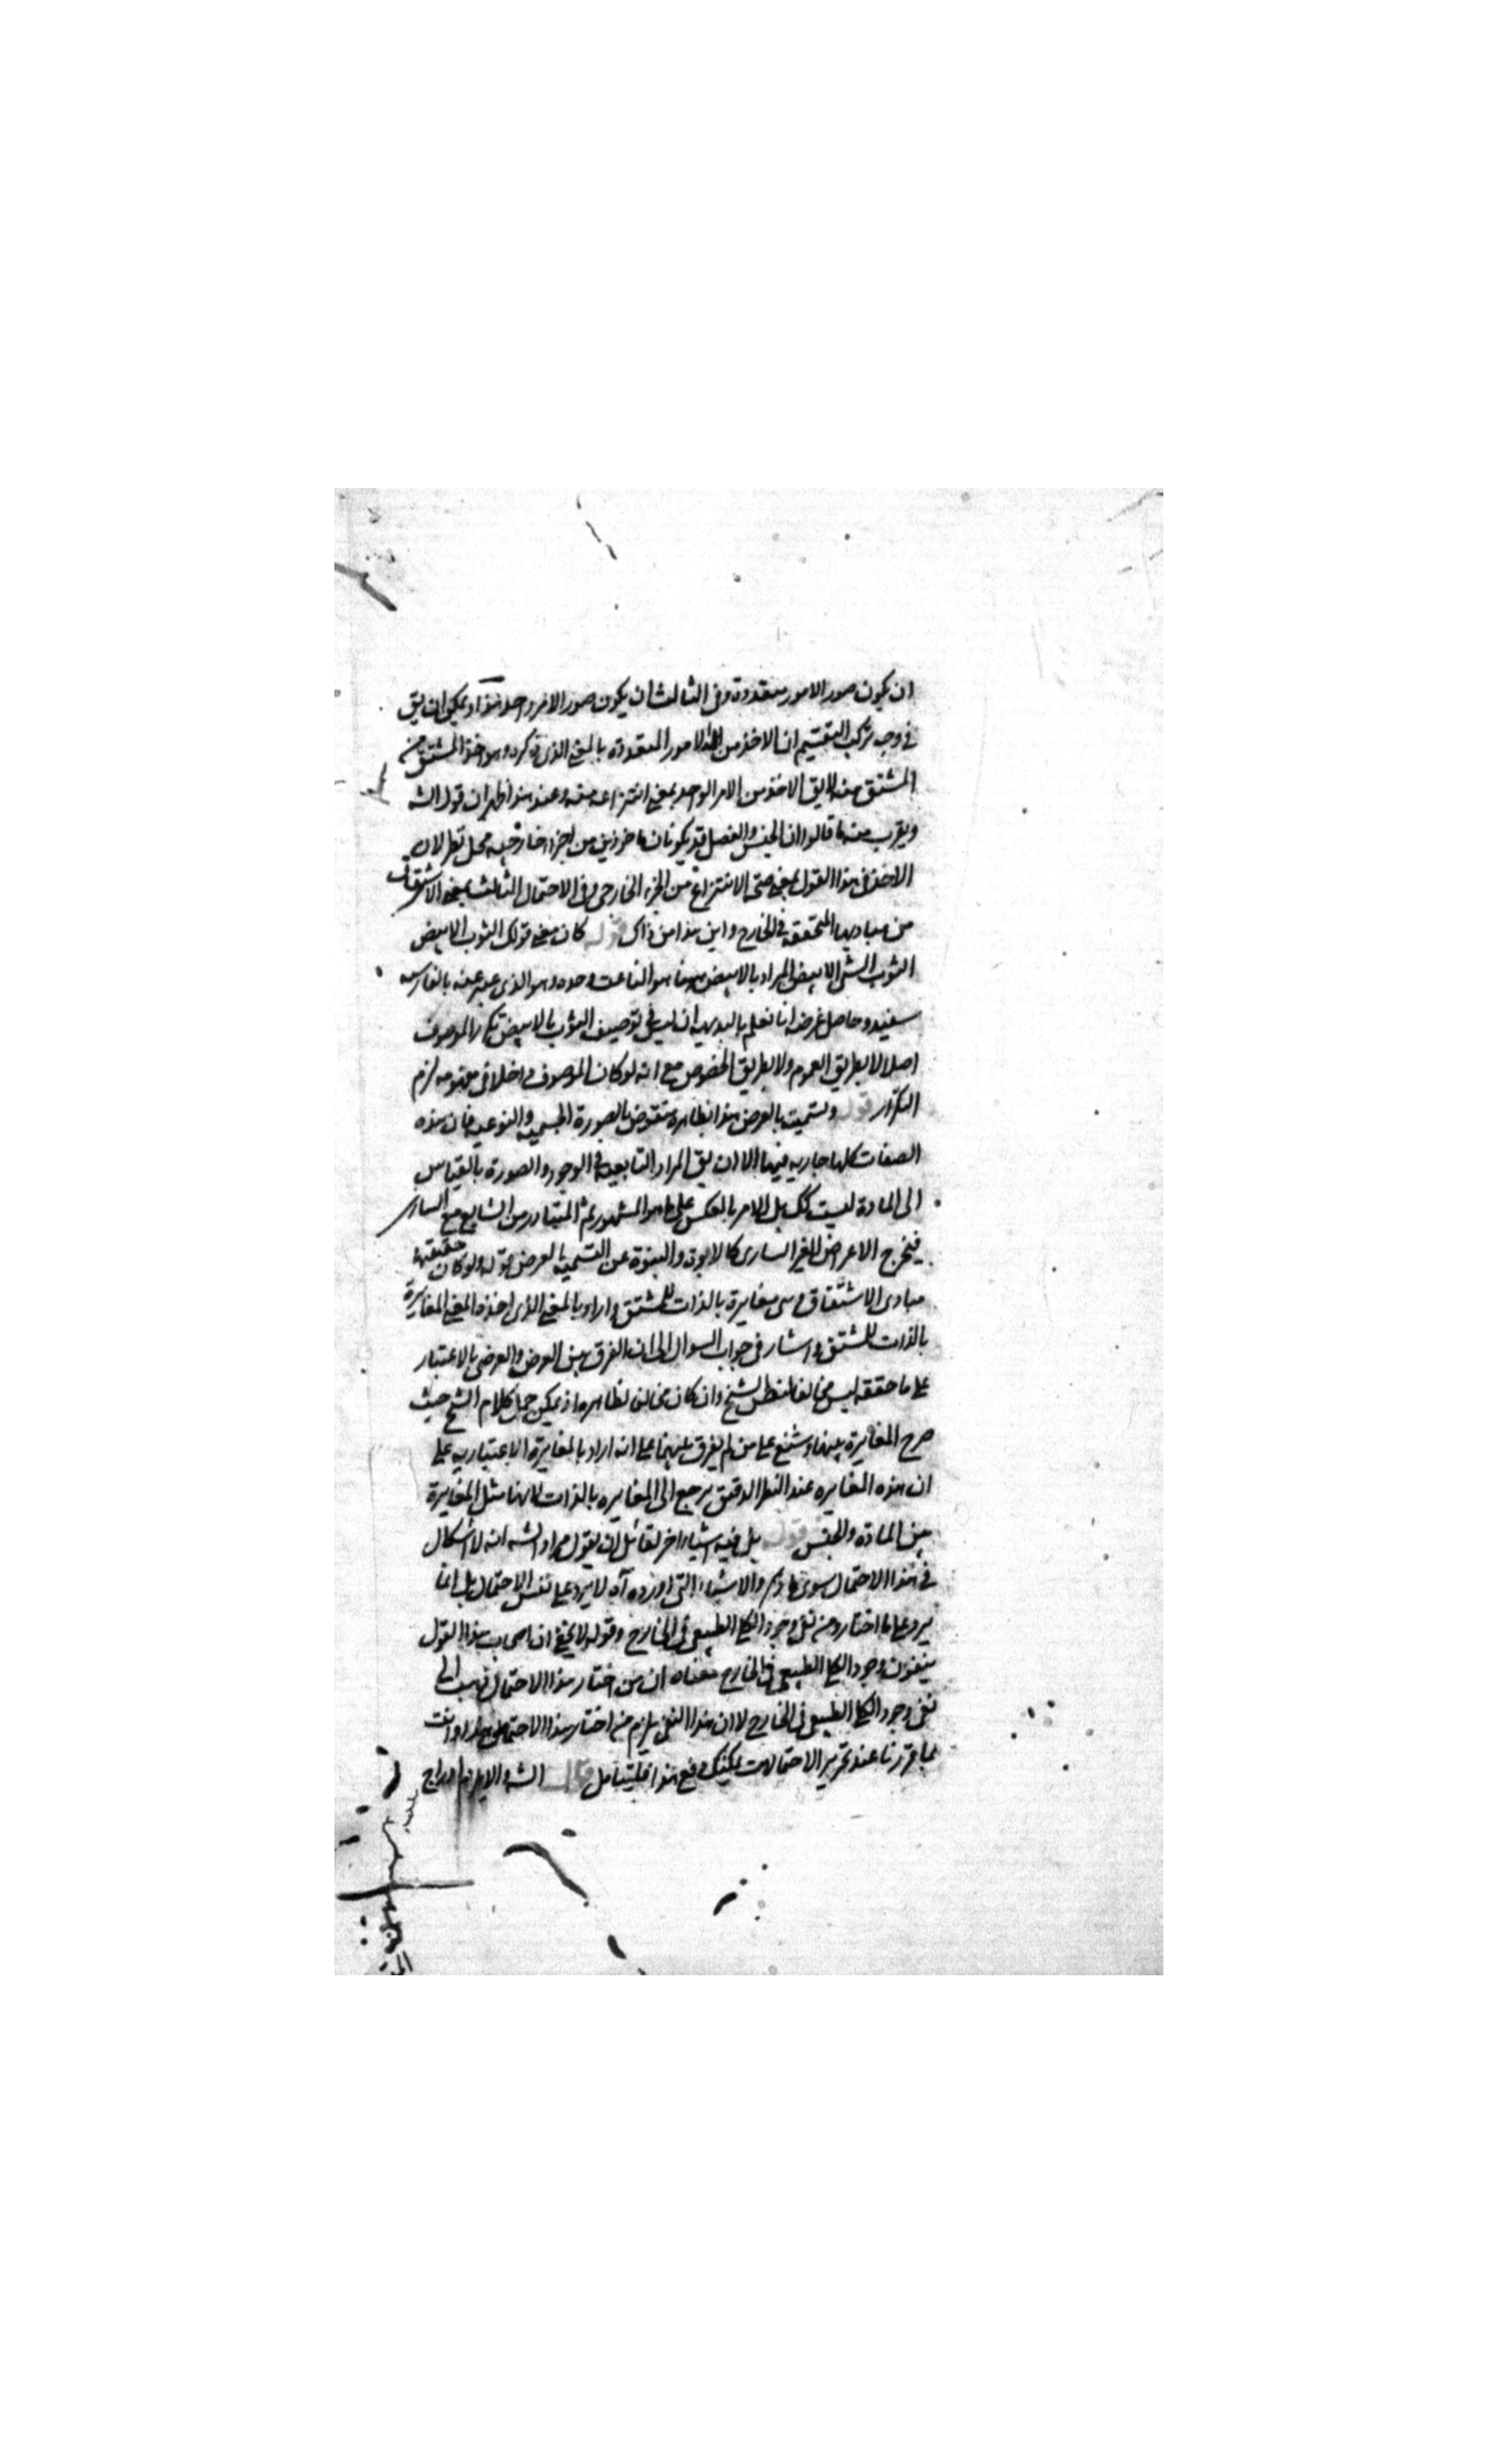 ان يكون صور الامور متعددة وفى الثالث ان يكون صور الامر واحد هذا ويمكن ان يق
فى وجه تركب التقسيم ان الاخذ من الامور المتعددة بالمعنى الذى ذكره وهو اخذ المشتق من
المشتق منه لا يق الاخذ من الامر الواحد بمعنى انتزاعه منه وعند هذا ظهر ان قول الشه
ويقرب منه ما قالوا ان الجنس والفصل قد يكونان ماخوذين من اجزاء خارجيه محل نظر لان
الاخذ فى هذا القول بمعنى صحة الانتزاع من الجزء الخارجى وفى الاحتمال الثالث بمعنى الاشتقاق
من مباديها المتحققه فى الخارج واين هذا من ذاك قوله كان معنى قولك الثوب الابيض
الثوب الشئ الابيض المراد بالابيض ههنا هو الناعت وحده وهو الذى عبر عنه بالفارسه
سفيد وحاصل غرضه انا نعلم بالبديهه ان ليس فى توصيف الثوب بالابيض تكرار الموصوف
اصلا لا بطريق العموم ولا بطريق الخصوص مع انه لو كان الموصوف داخلا فى مفهومه لزم
التكرار قوله وتسميته بالعرض هذا بظاهره منقوض بالصورة الجسميه والنوعيه فان هذه
الصفات كلها جاريه فيها الا ان يق المراد التابعية فى الوجود والصورة بالقياس
الى المادة ليست كك بل الامر بالعكس على ما هو المشهور ثم المتبادر من الشايع مع السارى
فيخرج الاعراض الغير السارى كالابوة والبنوة عن التسميه بالعرض قوله ولو كان حقيقتها
مبادى الاشتقاق هى مغايرة بالذات للمشتق اراد بالمعنى الذى اخذه المعنى المغايرة
بالذات للمشتق واشار فى جواب السوال الى ان الفرق بين العرض والعرضى بالاعتبار
على ما حققه ليس مخالفا لنظر الشيخ وان كان مخالف لظاهره اذ يمكن حمل كلام الشيخ حيث
صرح المغايرة بينهما وشنع على من لم يفرق بينهما على انه اراد بالمغايرة الاعتباريه على
ان هذه المغايره عند النظر الدقيق يرجع الى المغايره بالذات لانها مثل المغايرة
بين المادة والجنس قوله بل فيه اشياء اخر لقائل ان يقول مراد الشه انه لا اشكال
فى هذا الاحتمال سوى والاشياء التى اورده آه لا يرد على نفس الاحتمال بل انما
يرد على ما اختاره من نفى وجود الكلى الطبيعى فى الخارج وقوله لا يخفى ان اصحاب هذا القول
ينفون وجود الكلى الطبيعى فى الخارج معناه ان من اختار هذا الاحتمال ذهب الى
نفى وجود الكلى الطبيعى فى الخارج لا ان هذا النفى يلزم من اختار هذا الاحتمال وانت
بما قررنا عند تحرير الاحتمالات يمكنك دفع هذا فليتامل قال الشه والا